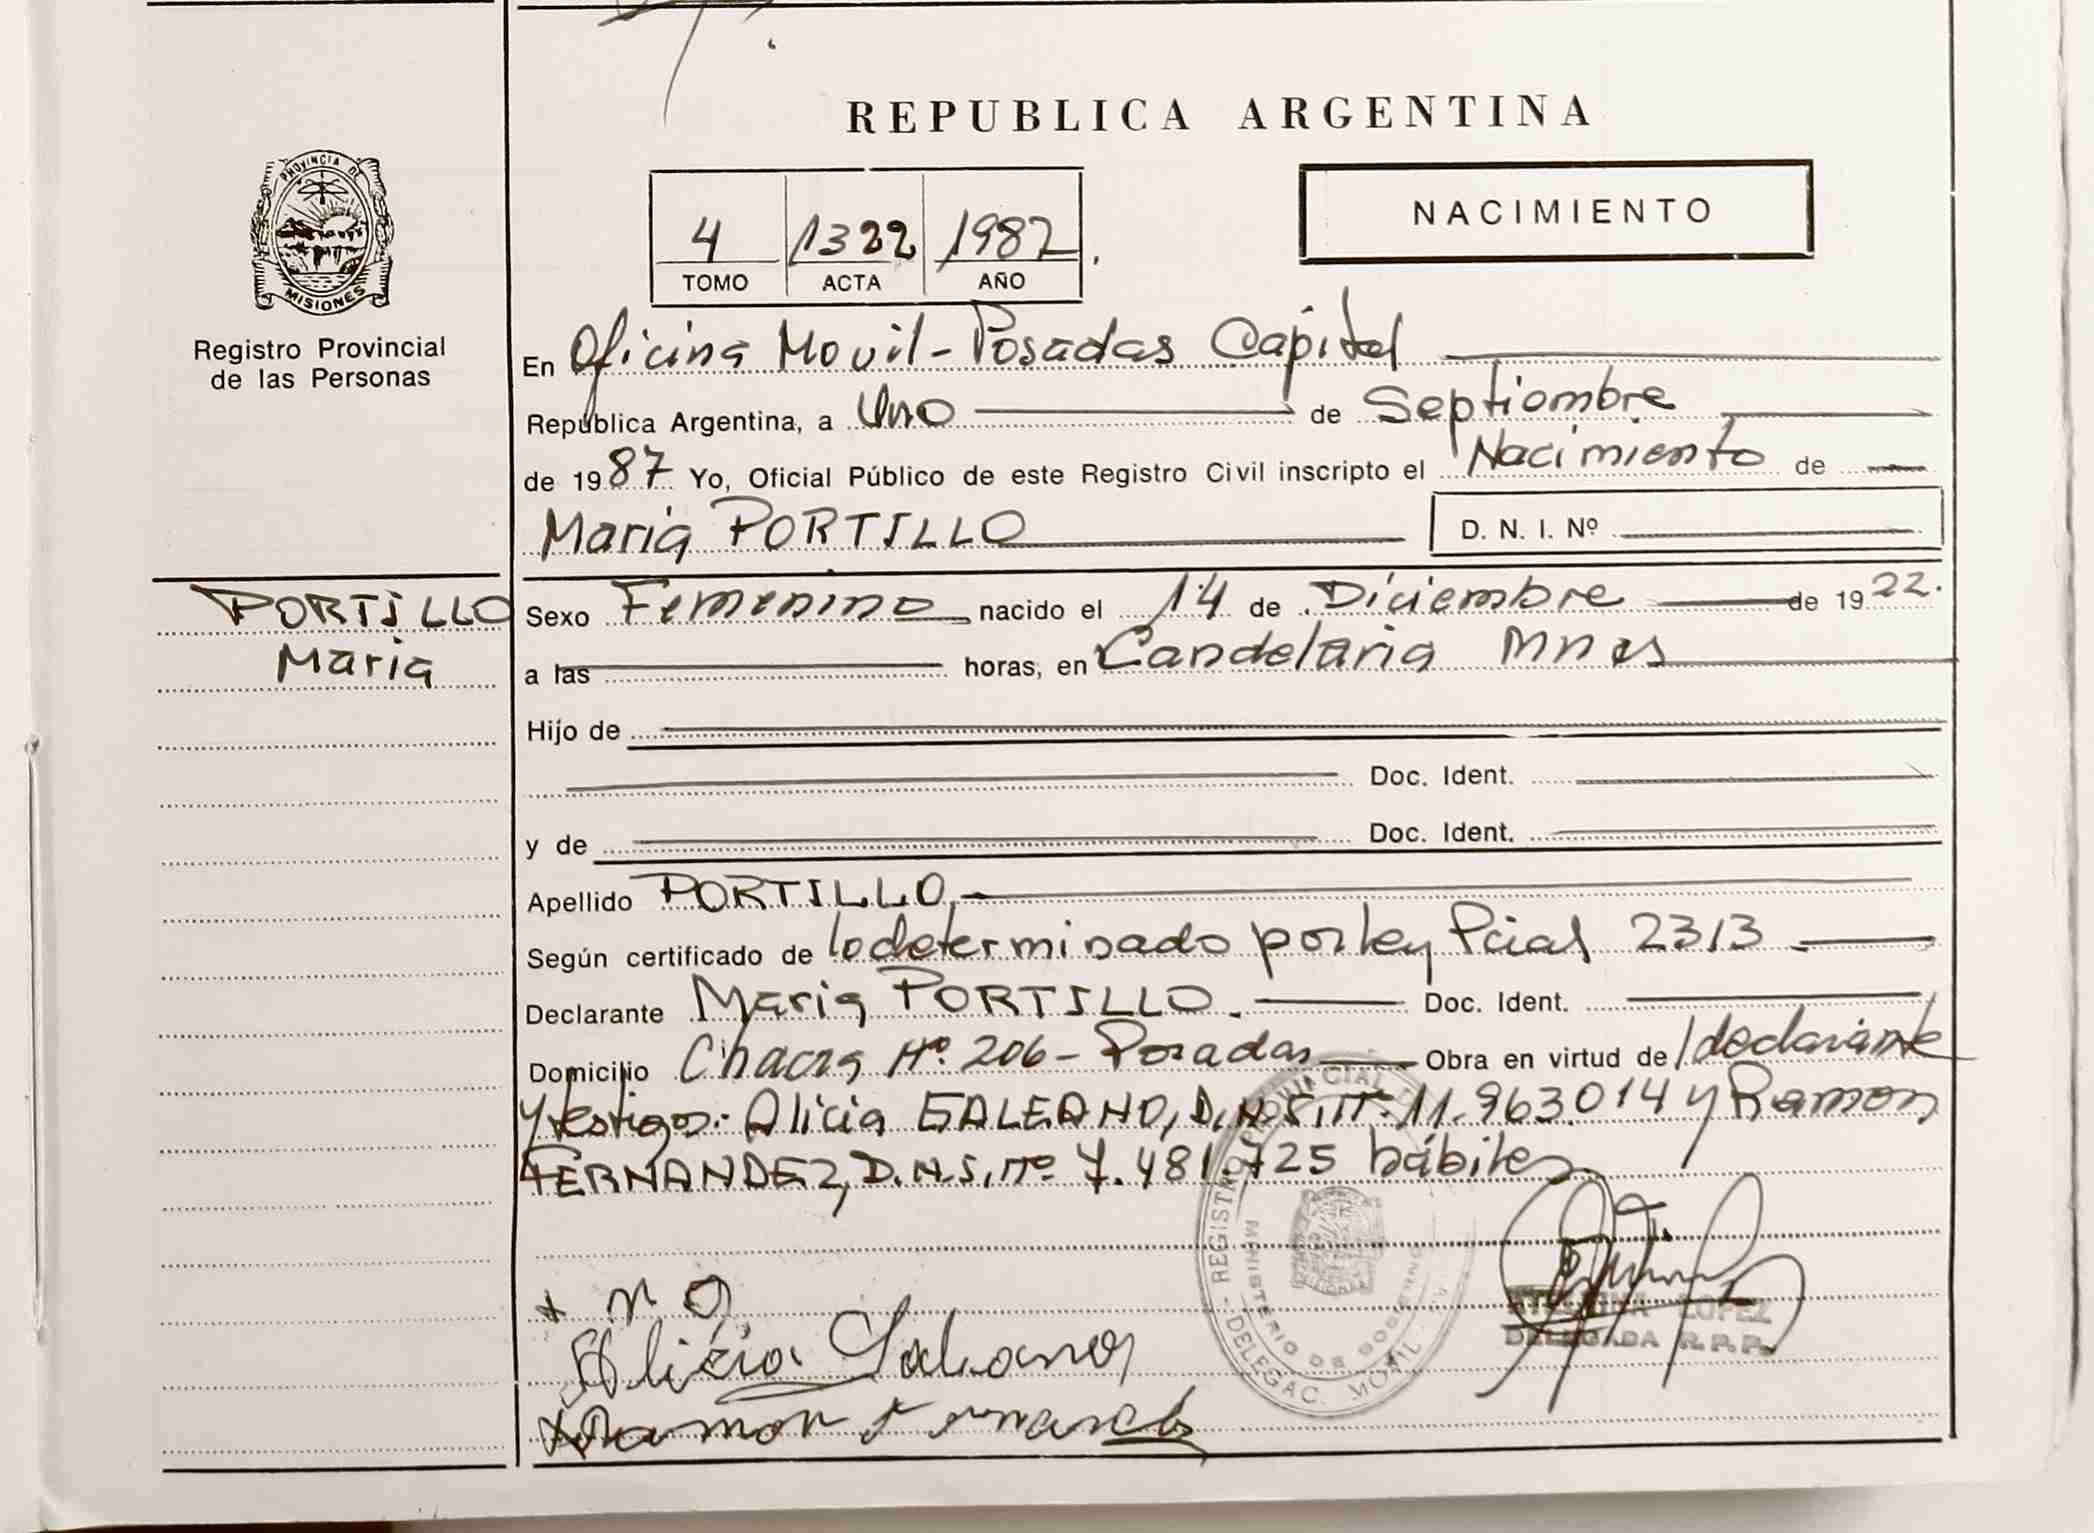 REPUBLICA ARGENTINA
PROVINCIA DE
MISIONES
Registro Provincial
de las Personas
4 1322 1987
TOMO ACTA AÑO
NACIMIENTO
En Oficina Movil - Posadas Capital
República Argentina, a Uno de Septiembre
de 1987 Yo, Oficial Público de este Registro Civil inscripto el Nacimiento de
Maria PORTILLO D. N. I. Nº
PORTILLO
Maria
Sexo Femenino nacido el 14 de Diciembre de 1922.
a las horas, en Candelaria Mnes
Hijo de
Doc. Ident.
y de Doc. Ident.
Apellido PORTILLO
Según certificado de lo determinado por ley Pcial 2313
Declarante Maria PORTILLO. Doc. Ident.
Domicilio Chacra Nº 206 - Posadas Obra en virtud de / declarante
y testigos: Alicia GALEANO, D.N.I. nº 11.963.014 y Ramon
FERNANDEZ, D.N.I. nº 7.481.725 hábiles
Alicia Galeano
Ramon Fernandez
REGISTRO PROVINCIAL
MINISTERIO DE GOBIERNO
DELEGAC. MOVIL
LOPEZ
DELEGADA R.P.P.